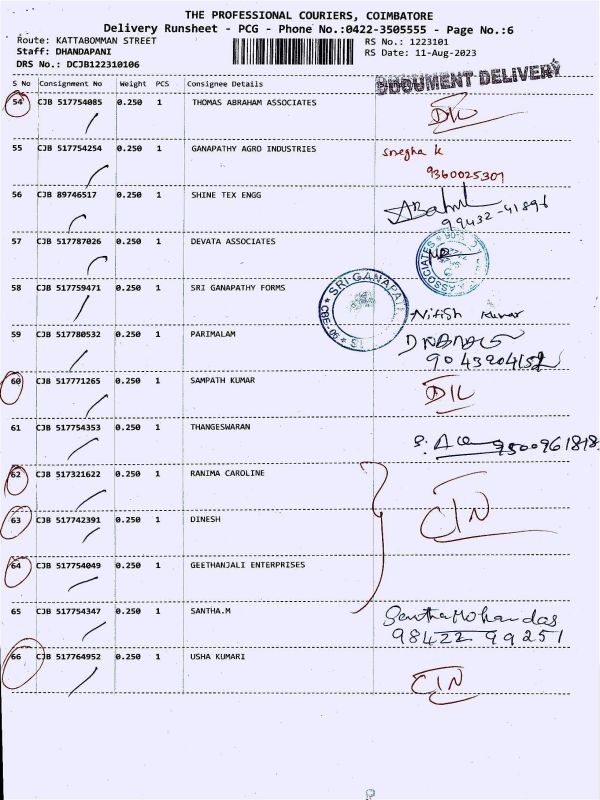 THE PROFESSIONAL COURIERS, COIMBATORE
Delivery Runsheet - PCG - Phone No.:0422-3505555 - Page No.:6
Route: KATTABOMMAN STREET RS No.: 1223101
Staff: DHANDAPANI RS Date: 11-Aug-2023
DRS No.: DCJB122310106
S No Consignment No Weight PCS Consignee Details
DOCUMENT DELIVERY
54 CJB 517754085 0.250 1 THOMAS ABRAHAM ASSOCIATES
D/L
55 CJB 517754254 0.250 1 GANAPATHY AGRO INDUSTRIES Snegha K
9360025307
56 CJB 89746517 0.250 1 SHINE TEX ENGG
99432-41896
57 CJB 517787026 0.250 1 DEVATA ASSOCIATES
ASSOCIATES
58 CJB 517759471 0.250 1 SRI GANAPATHY FORMS
SRI GANAPAT
Nitish Kumar
59 CJB 517780532 0.250 1 PARIMALAM
60 CJB 517771265 0.250 1 SAMPATH KUMAR D/L
61 CJB 517754353 0.250 1 THANGESWARAN
9500961818
62 CJB 517321622 0.250 1 RANIMA CAROLINE
CIN
63 CJB 517742391 0.250 1 DINESH
64 CJB 517754049 0.250 1 GEETHANJALI ENTERPRISES
65 CJB 517754347 0.250 1 SANTHA.M Santha Mohandas
98422 99251
66 CJB 517764952 0.250 1 USHA KUMARI
CIN